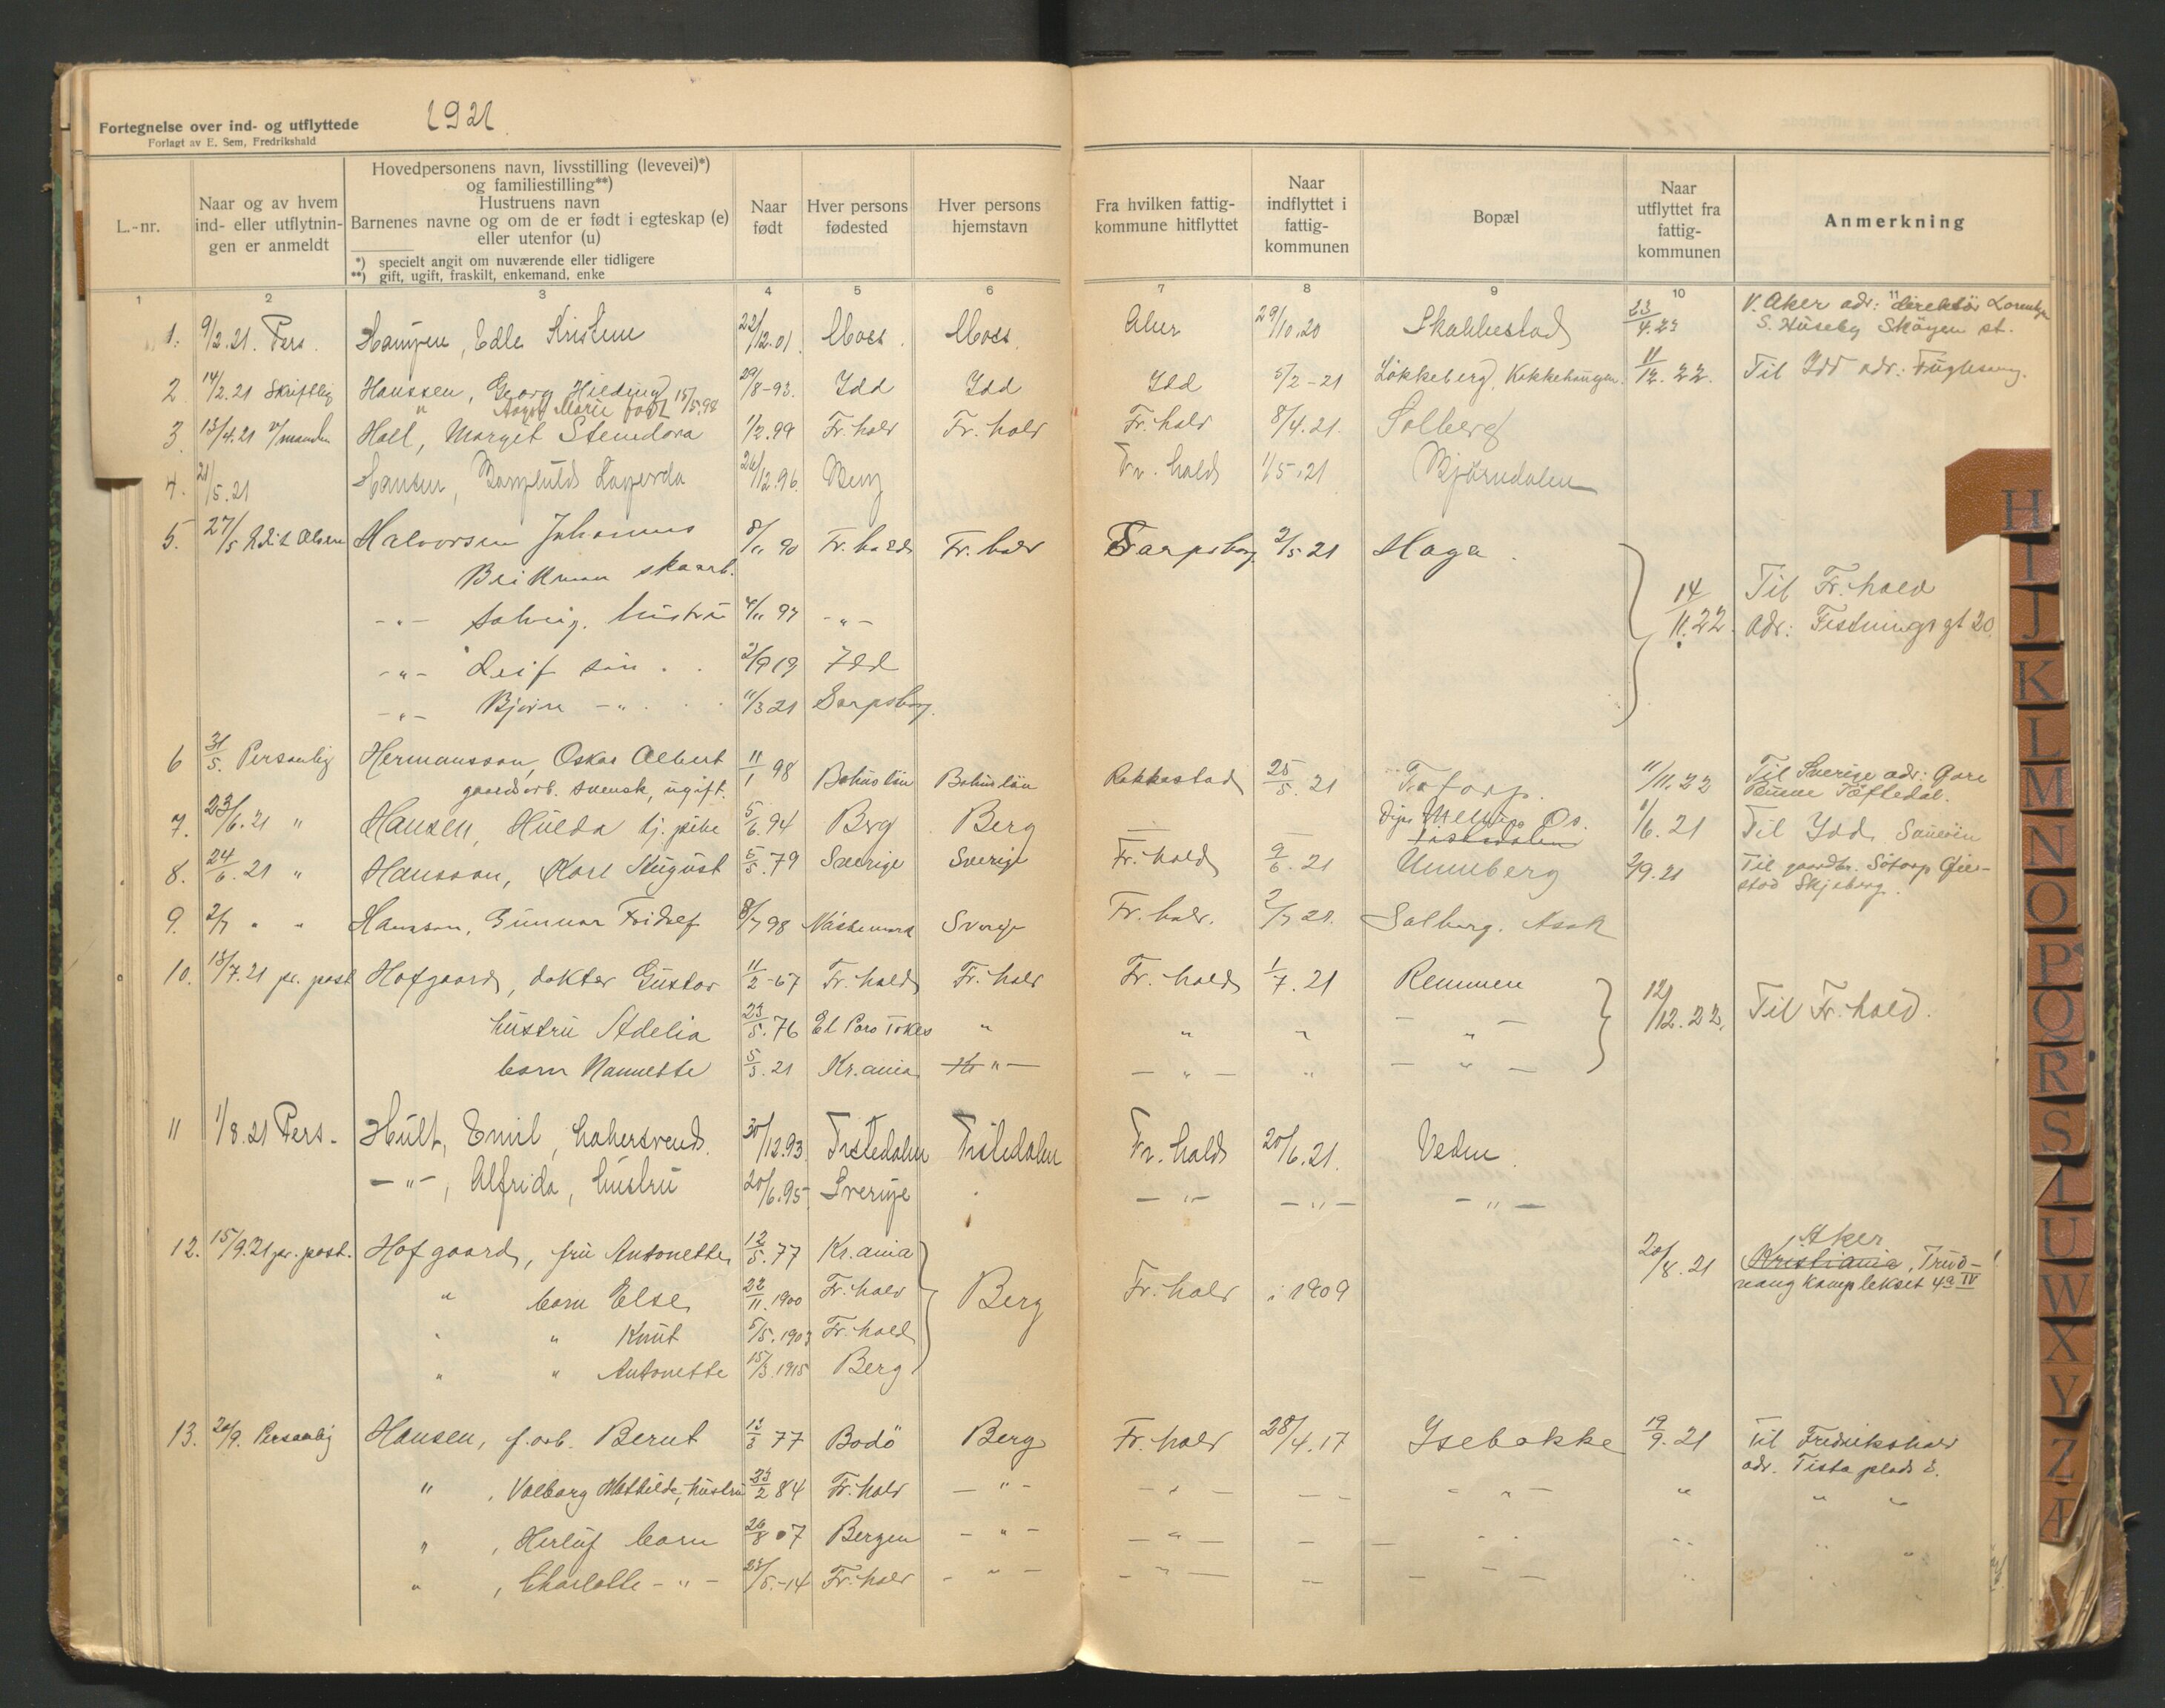 Fortegnelse over ind- og utflyttede 1921.
Forlagt av E. Sem, Fredrikshald
L.-nr.
Naar og av hvem ind- eller utflytnin-gen er anmeldt
Hovedpersonens navn, livsstilling (levevei)*)
og familiestilling**)
Hustruens navn
Barnenes navne og om de er født i egteskap (e)
eller utenfor (u)
*) specielt angit om nuværende eller tidligere
**) gift, ugift, fraskilt, enkemand, enke
Naar født
Hver persons fødested
Hver persons hjemstavn
Fra hvilken fattig-kommune hitflyttet
Naar indflyttet i fattig-kommunen
Bopæl
Naar utflyttet fra fattig-kommunen
Anmerkning
1 2 3 4 5 6 7 8 9 10 11
1. 9/2.21. Pers. Edle Kristine 22/12.01. Moss. Moss. Aker 29/10.20 Skabbestad 23/4.23 V. Aker adr: direktör Lorentzen
S. Huseby Sköyen st.
2 14/2.21 Skriftlig Hanssen, Georg Hilding 29/8-93. Idd Idd Idd 5/2-21 Løkkeberg, Kokkehaugen. 11/12.22. Til Idd adr: Fuglesang.
" Marie født 15/5.98
3. 13/4.21 Hall, Margit Stendora 1/2.99 Fr.hald Fr.hald Fr.hald 8/4.21. Solberg
4. 21/5.21 Hansen, 26/12.96. Berg Fr.hald 1/5.21 Bjørndalen
5. 27/5 Halvorsen Johannes 8/11 90 Fr.hald Fr.hald Sarpsborg 2/5 21 Haga.
Brikman skoarb.
-"- Solveig. hustru 4/11 97 -"-
-"- Leif søn 2/9 19 Idd 14/11.22. Til Fr.hald
adr: Festnings gt 20.
-"- Bjørn -"- 11/3 21 Sarpsborg.
6 31/5. Personlig Hermansson, Oskar Albert 11/1 98 Bohuslän Bohuslän Rakkestad 25/5.21 Torp. 11/11.22 Til Sverige adr:
gaardsarb. svensk, ugift. Töftedal.
7. 23/6.21 " Hansen, Hulda tj. pike 5/6.94 Berg Berg — — Os. 1/6.21 Til Idd
Tistedalen
8. 24/6.21 " Hansson, Karl August 5/5.79 Sverige Sverige Fr.hald 9/6.21 Unneberg 2/9.21 Til gaardbr. Sótorp
Skjeberg.
9. 2/7 " " Hansson, Gunnar Fridlef 8/7 98 Sverige Fr.hald. 2/7 21. Solberg. Asak
10. 13/7.21 pr. post Hofgaard, doktor Gustav 11/2-67 Fr.hald Fr.hald Fr.hald 1/7.21 Remmen 12/12.22. Til Fr.hald.
hustru Adelia 23/5.76 " " " — " —
barn Nannette 5/5.21 Kr.ania — " — — " — " — " —
11 1/8.21 Pers. Hult, Emil, 30/12.93. Tistedalen Tistedalen Fr.hald 20/6.21. Veden.
—"—, Alfrida, hustru 20/6.95 Sverige — " — — " — — " —
12. 15/9.21 pr. post. Hofgaard, fru Antonette 12/5.77 Kr.ania Berg Fr.hald i 1909 20/8.21 Aker
Kristiania, Trud-
vang komplekset 4a IV
" barn Else 22/11.1900 Fr.hald
" " Knut 5/5.1903 Fr.hald
" " Antonette 15/3.1915 Berg
13. 20/9. Personlig Hansen, f.arb. Bernt 12/3 77 Bodö Berg Fr.hald 28/4.17 Isebakke 19/9.21 Til Fredrikshald
adr. Tista plads 2.
" , Valborg Mathilde, hustru 23/2 84 Fr.hald — " —
" , Herluf barn 26/8 07 Bergen — " —
" , Charlotte — " — 23/5.-14 Fr.hald — " —
H
I
J
K
L
M
N
O
P
Q
R
S
T
U
W
X
Y
Z
Æ